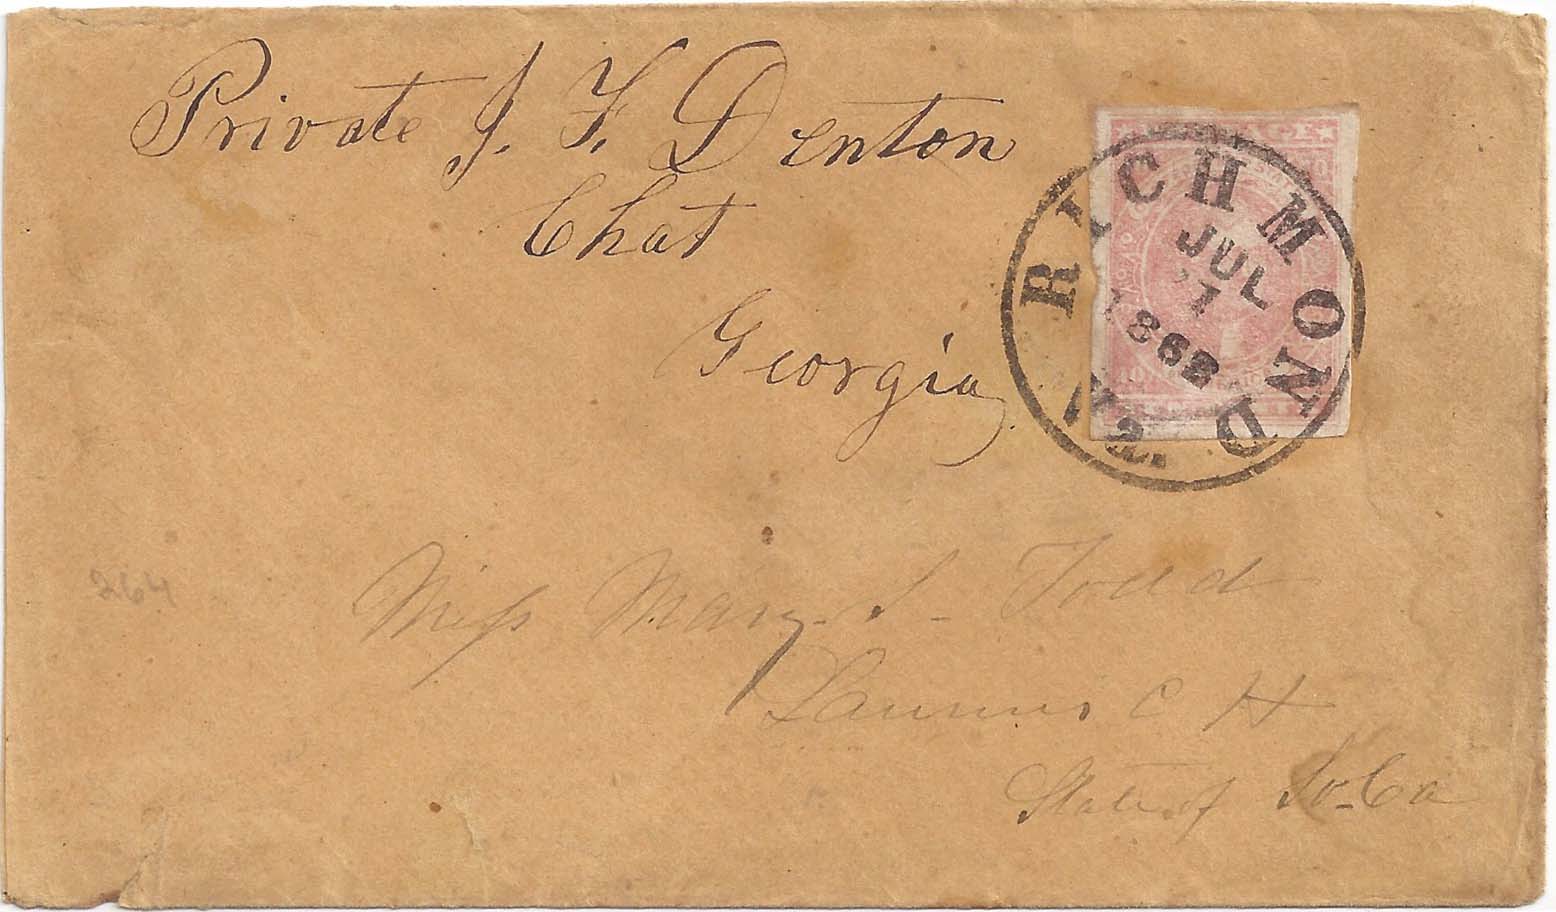 Private J. F. Denton
Chat
Georgia
POSTAGE
RICHMOND
JUL
1862
Va.
264
Miss Mary S. Todd
Laurens C H
State of So-Ca